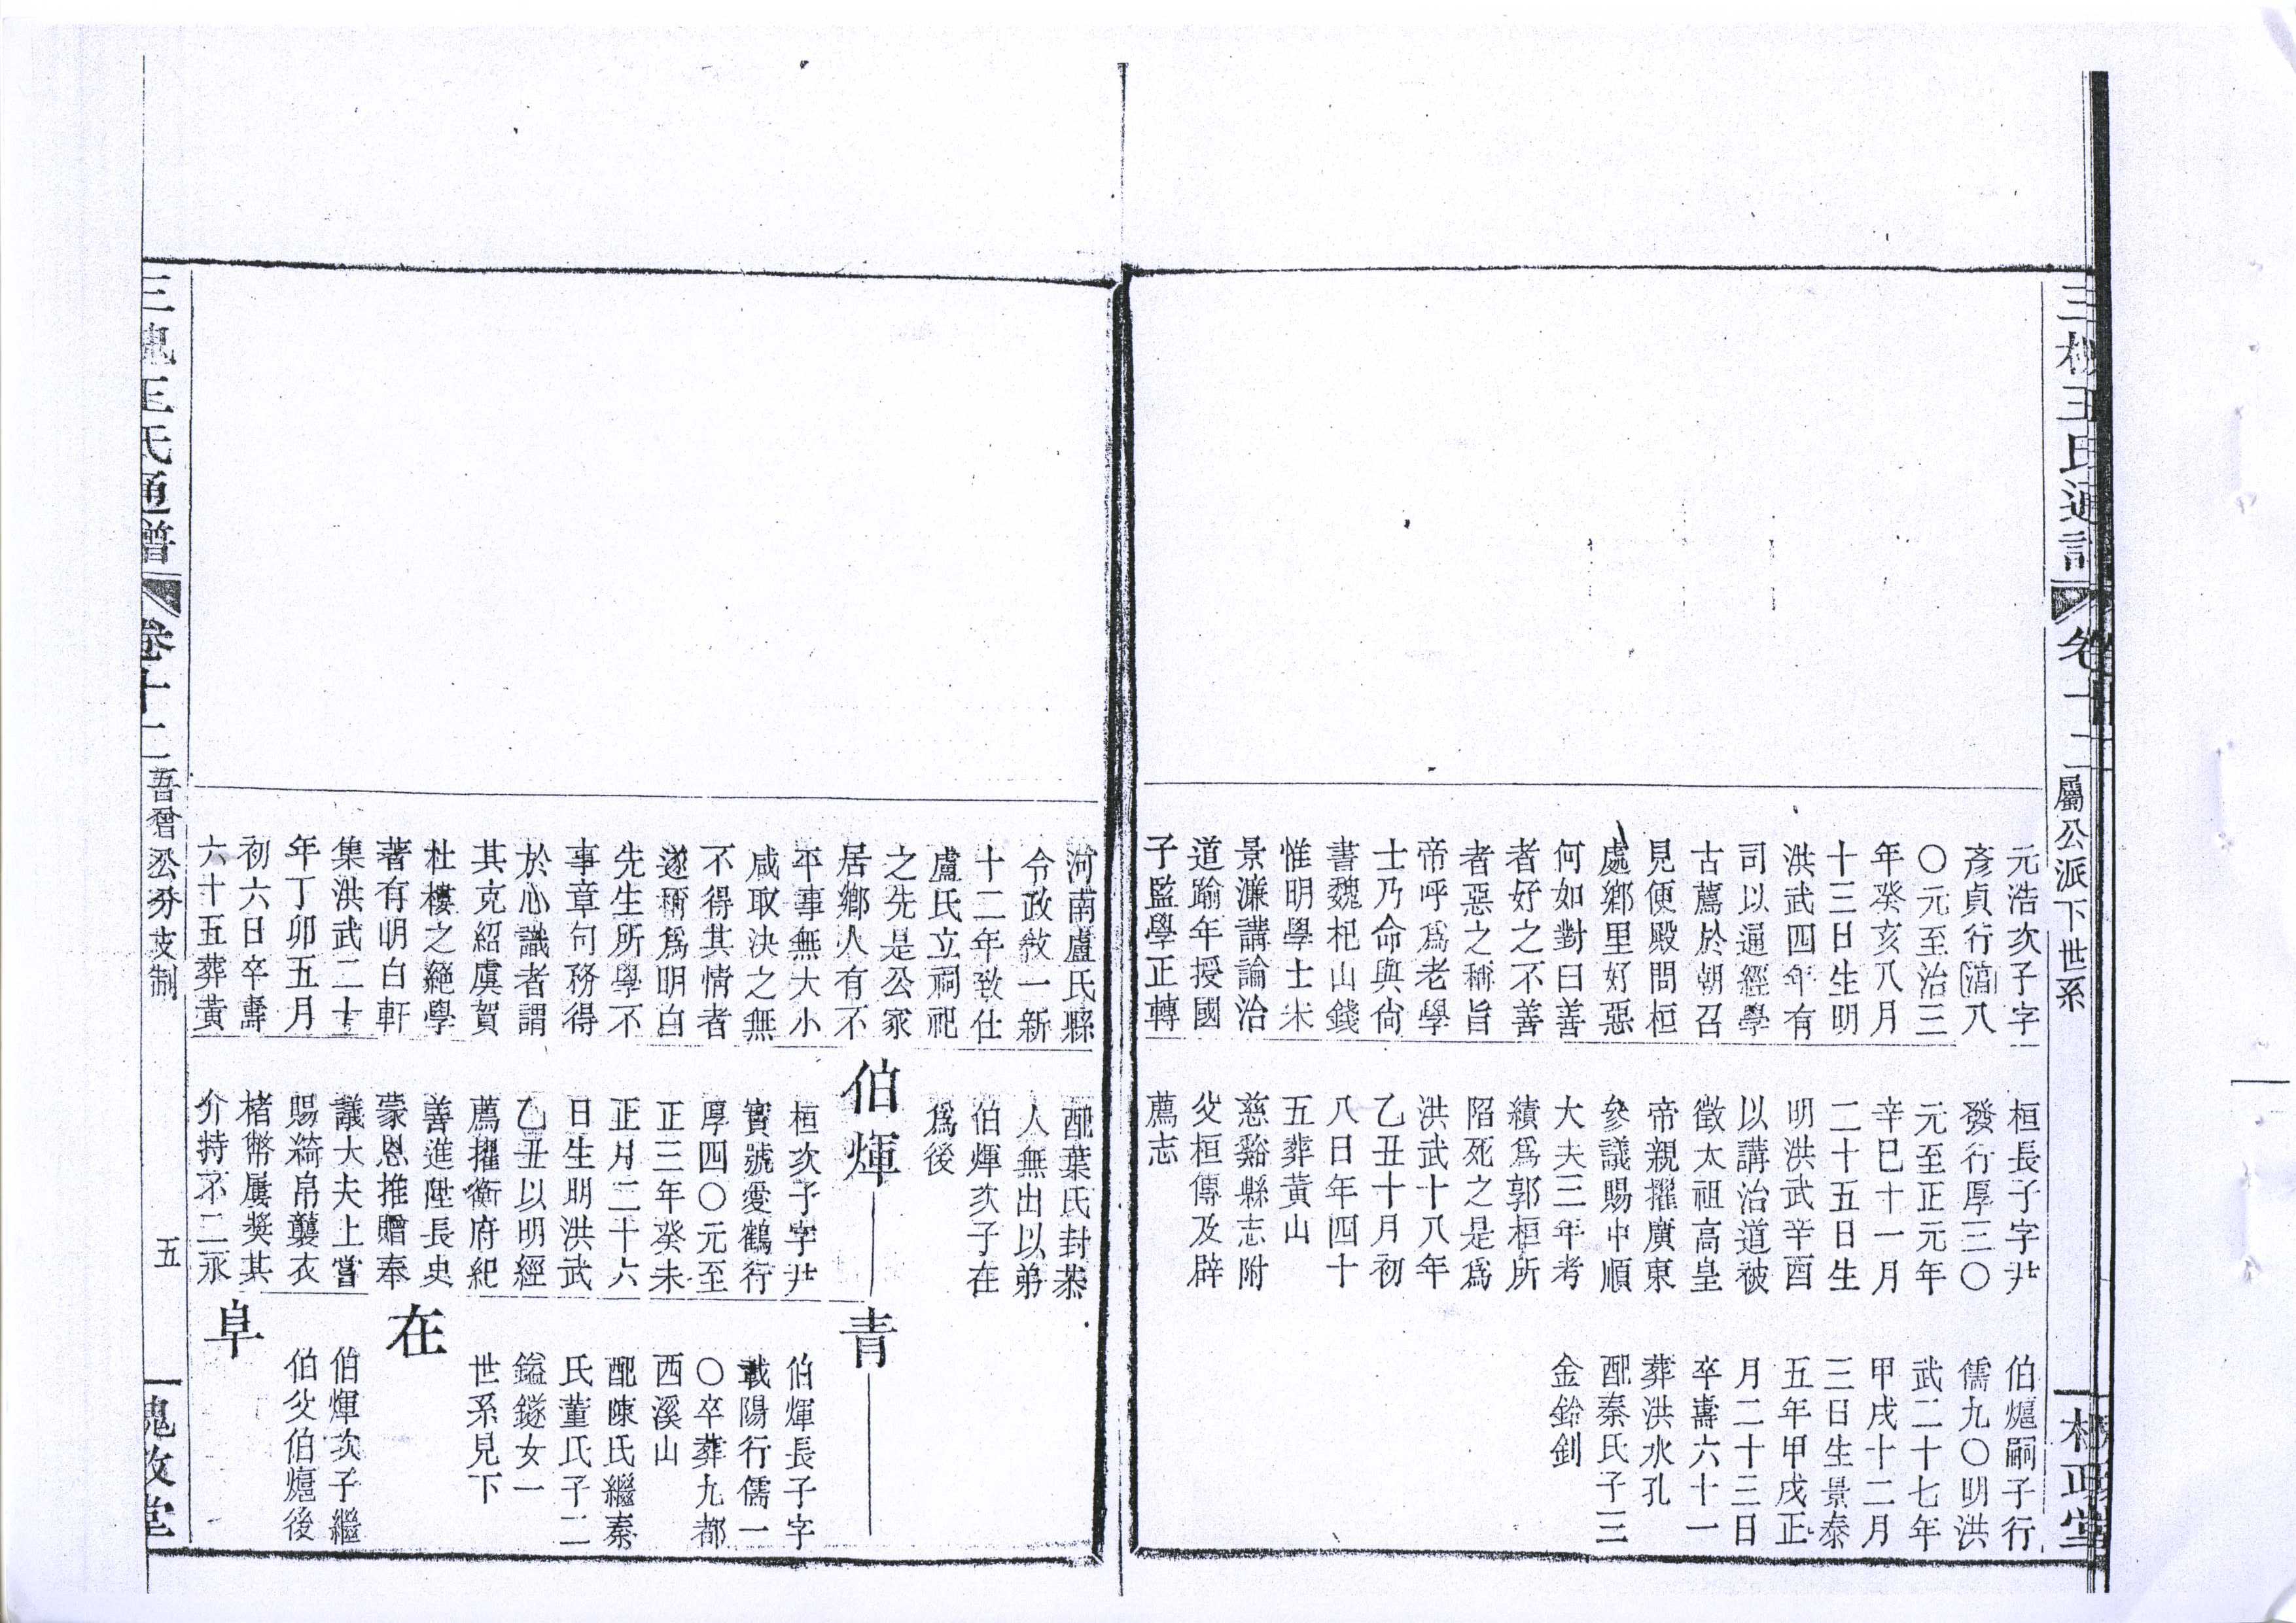 三槐王氏通譜
卷十二
屬公派下世系
槐政堂
元浩次子字
彥貞行清八
〇元至治三
年癸亥八月
十三日生明
洪武四年有
司以通經學
古薦於朝召
見便殿問桓
處鄉里好惡
何如對曰善
者好之不善
者惡之稱旨
帝呼爲老學
士乃命與尙
書魏杞山錢
惟明學士宋
景濂講論治
道踰年授國
子監學正轉
桓長子字尹
發行厚三〇
元至正元年
辛巳十一月
二十五日生
明洪武辛酉
以講治道被
徵太祖高皇
帝親擢廣東
參議賜中順
大夫三年考
績爲郭桓所
陷死之是爲
洪武十八年
乙丑十月初
八日年四十
五葬黃山
慈谿縣志附
父桓傳及辟
薦志
伯熜嗣子行
儒九〇明洪
武二十七年
甲戌十二月
三日生景泰
五年甲戌正
月二十三日
卒壽六十一
葬洪水孔
配秦氏子三
金鉿釗
河南盧氏縣
令政敎一新
十二年致仕
盧氏立祠祀
之先是公家
居鄉人有不
平事無大小
咸取決之無
不得其情者
遂稱爲明白
先生所學不
事章句務得
於心識者謂
其克紹虞賀
杜樓之絕學
著有明白軒
集洪武二十
年丁卯五月
初六日卒壽
六十五葬黃
配葉氏封恭
人無出以弟
伯煇次子在
爲後
伯煇
桓次子字尹
實號愛鶴行
厚四〇元至
正三年癸未
正月二十六
日生明洪武
乙丑以明經
薦擢衡府紀
善進陞長史
蒙恩推贈奉
議大夫上嘗
賜綺帛襲衣
楮幣屢獎其
介持不二永
青
伯煇長子字
載陽行儒一
〇卒葬九都
西溪山
配陳氏繼秦
氏董氏子二
鎰鐩女一
世系見下
在
伯煇次子繼
伯父伯熜後
阜
三槐王氏通譜
卷十二
五
槐政堂